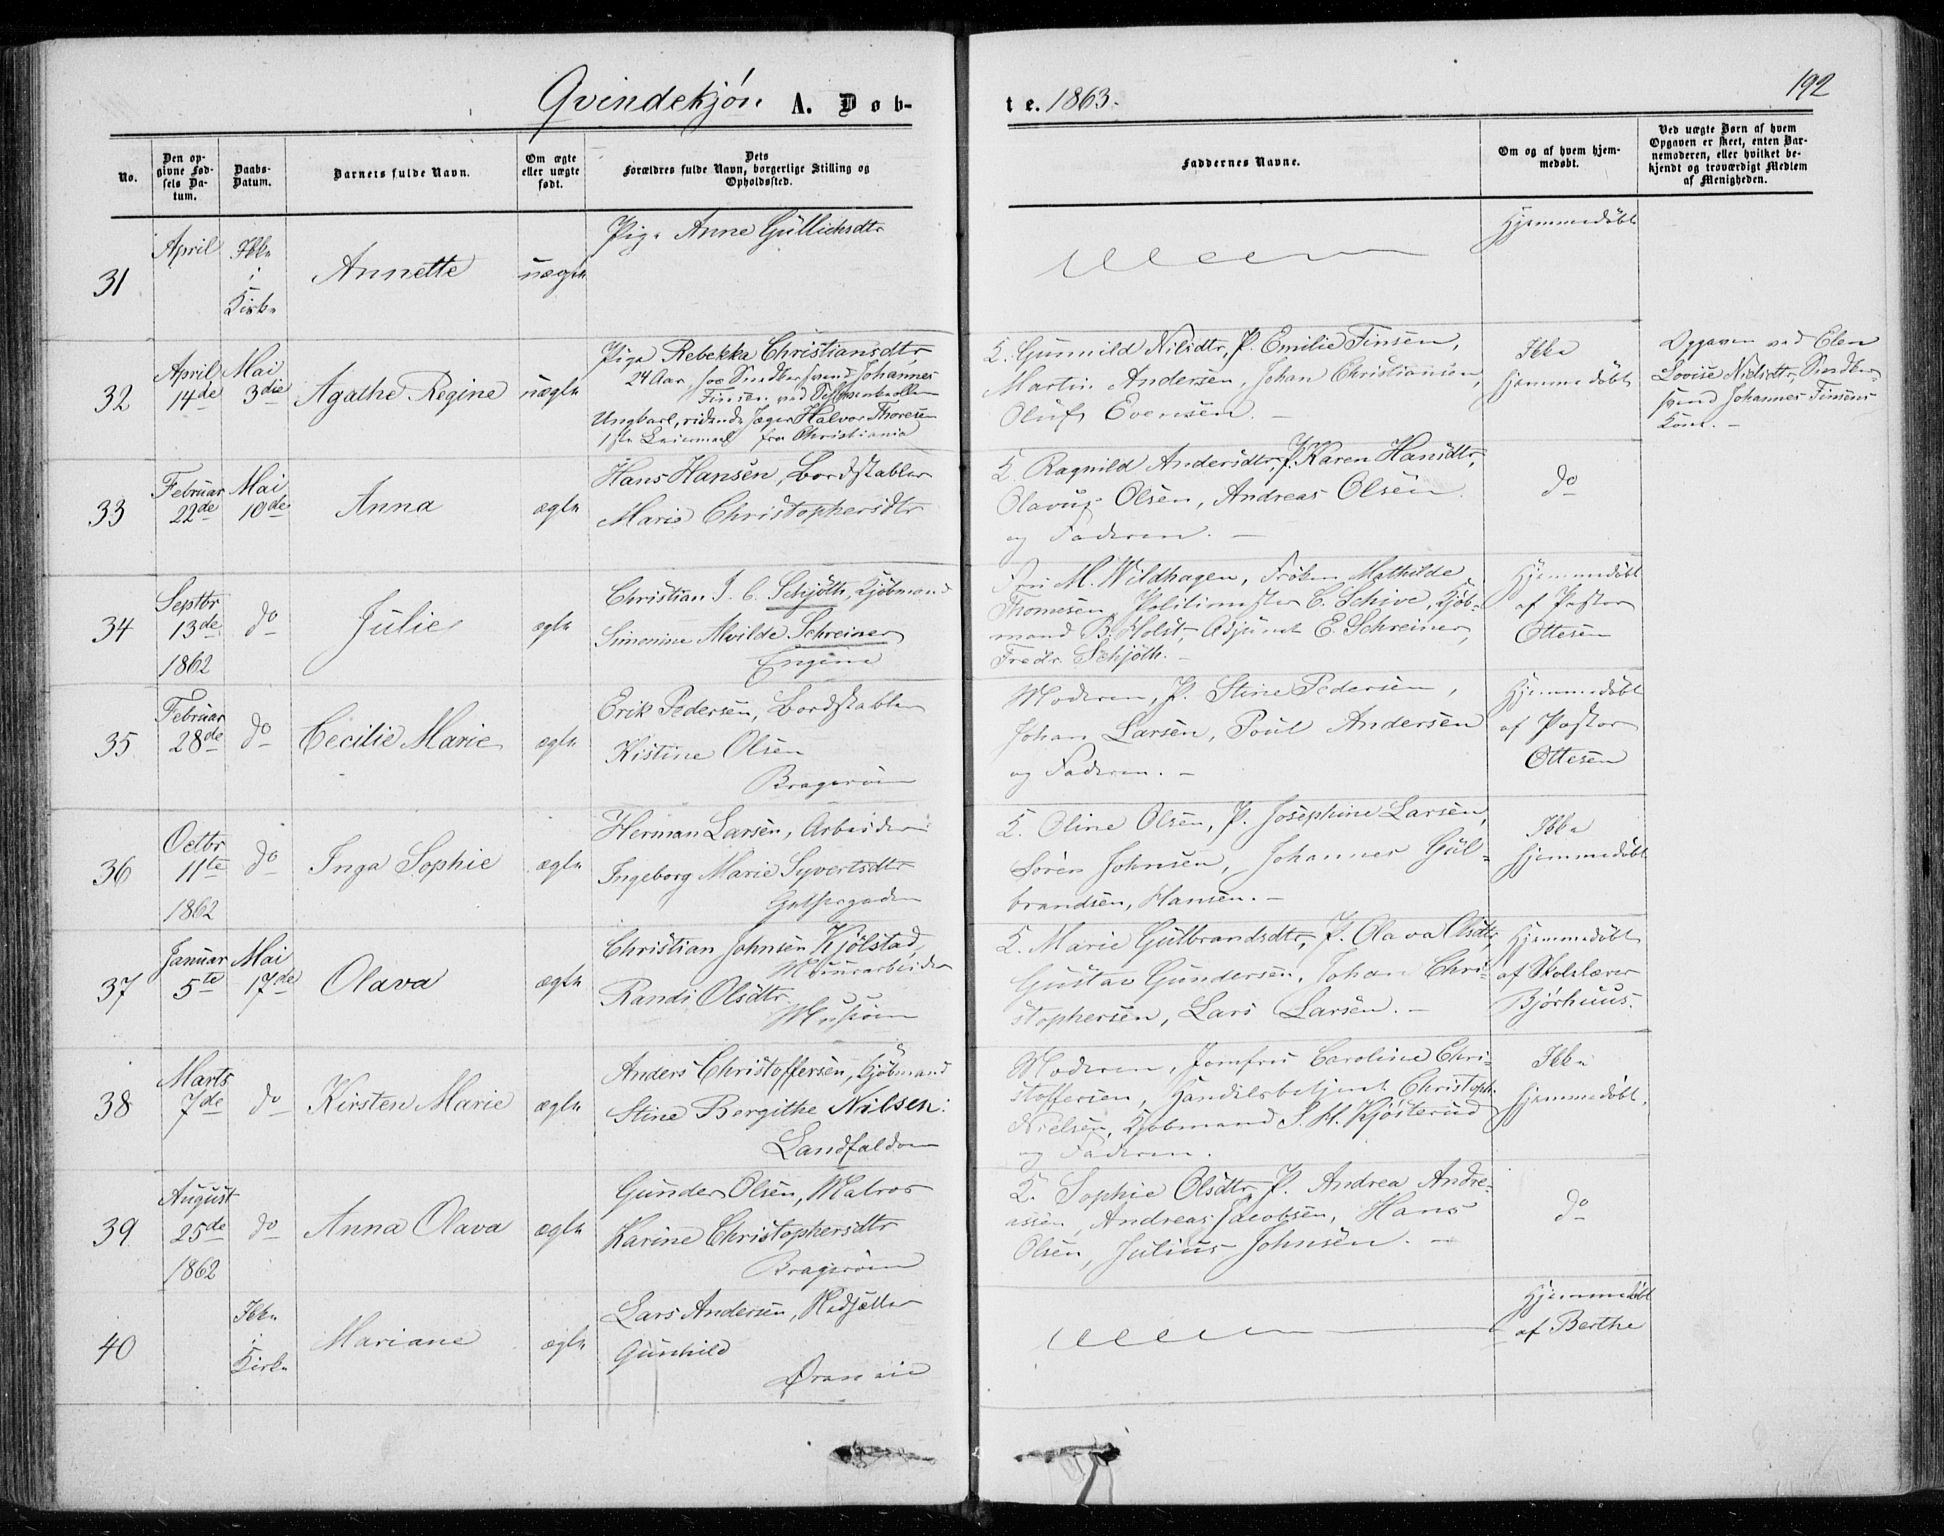 Qvindekjøn A. Døb-
te. 1863.
192
No.
Den op-
givne Fød-
sels Da-
tum.
Daabs-
Datum.
Barnets fulde Navn.
Om ægte
eller uægte
født.
Dets
Forældres fulde Navn, borgerlige Stilling og
Opholdssted.
Faddernes Navne.
Om og af hvem hjem-
medøbt.
Ved uægte Børn af hvem
Opgaven er skeet, enten Bar-
nemoderen, eller hvilket be-
kjendt og troværdigt Medlem
af Menigheden.
31
April
Ikke
i
Kirke
Annette
uægte
Pige Anne Gullichsdtr
Hjemmedøbt
32
April
14de
Mai
3die
Agathe Regine
uægte
Pige Rebekka Christiansdtr
24 Aar, hos Snedkersvend Johannes
Finsen ved
Ungkarl, ridende Jæger Halvor Thoresen
1ste Leiermaal fra Christiania
K. Gunnild Nilsdtr, P. Emilie Finsen,
Martin Andersen, Johan Christiansen,
Oluf Evensen. -
Ikke
hjemmedøbt
Opgaven ved Elen
Lovise Nielsdtr, Snedker-
svend Johannes Finsens
Kone. -
33
Februar
22de
Mai
10de
Anna
ægte
Hans Hansen, Bordstabler
Marie Christophersdtr
K. Ragnild Andersdtr, P. Karen Hansdtr,
Olavus Olsen, Andreas Olsen
og Faderen. -
do
34
Septbr
13de
1862
do
Julie
ægte
Christian J. C. Schjøth, Kjøbmand
Simonine Alvilde Schreiner
Engene
Fru M. Wildhagen, Frøken Mathilde
Thomesen, Politimester C. Schive, Kjøb-
mand B. Holst, Adjunct E. Schreiner,
Fredr. Schjøth. -
Hjemmedøbt
af Pastor
Ottesen
35
Februar
28de
do
Cecilie Marie
ægte
Erik Pedersen, Bordstabler
Kistine Olsen
Bragerøen
Moderen, P. Stine Pedersen,
Johan Larsen, Poul Andersen
og Faderen. -
Hjemmedøbt
af Pastor
Ottesen
36
Octbr
11te
1862
do
Inga Sophie
ægte
Herman Larsen, Arbeider
Ingeborg Marie Syvertsdtr
K. Oline Olsen, P. Josephine Larsen,
Søren Johnsen, Johannes Gul-
brandsen, Hansen. -
Ikke
hjemmedøbt
37
Januar
5te
Mai
17de
Olava
ægte
Christian Johnsen Kjølstad,
Muurarbeider
Randi Olsdtr
K. Marie Gulbrandsdtr, P. Olava Olsdtr,
Gustav Gundersen, Johan Chri-
stophersen, Lars Larsen. -
Hjemmedøbt
af Skolelærer
Bjørhuus.
38
Marts
7de
do
Kirsten Marie
ægte
Anders Christoffersen, Kjøbmand
Stine Bergithe Nilsen
Landfaldøen
Moderen, Jomfru Caroline Chri-
stoffersen, Handelsbetjent Christoph.
Nielsen, Kjøbmand S. H. Kjøsterud
og Faderen.
Ikke
hjemmedøbt.
39
August
25de
1862
do
Anna Olava
ægte
Gunder Olsen, Matros
Karine Christophersdtr
Bragerøen
K. Sophie Olsdtr, P. Andrea Andre-
assen, Andreas Jacobsen, Hans
Olsen, Julius Johnsen. -
do
40
Ikke
i
Kirke
Mariane
ægte
Lars Andersen,
Gunhild
Hjemmedøbt
af Berthe